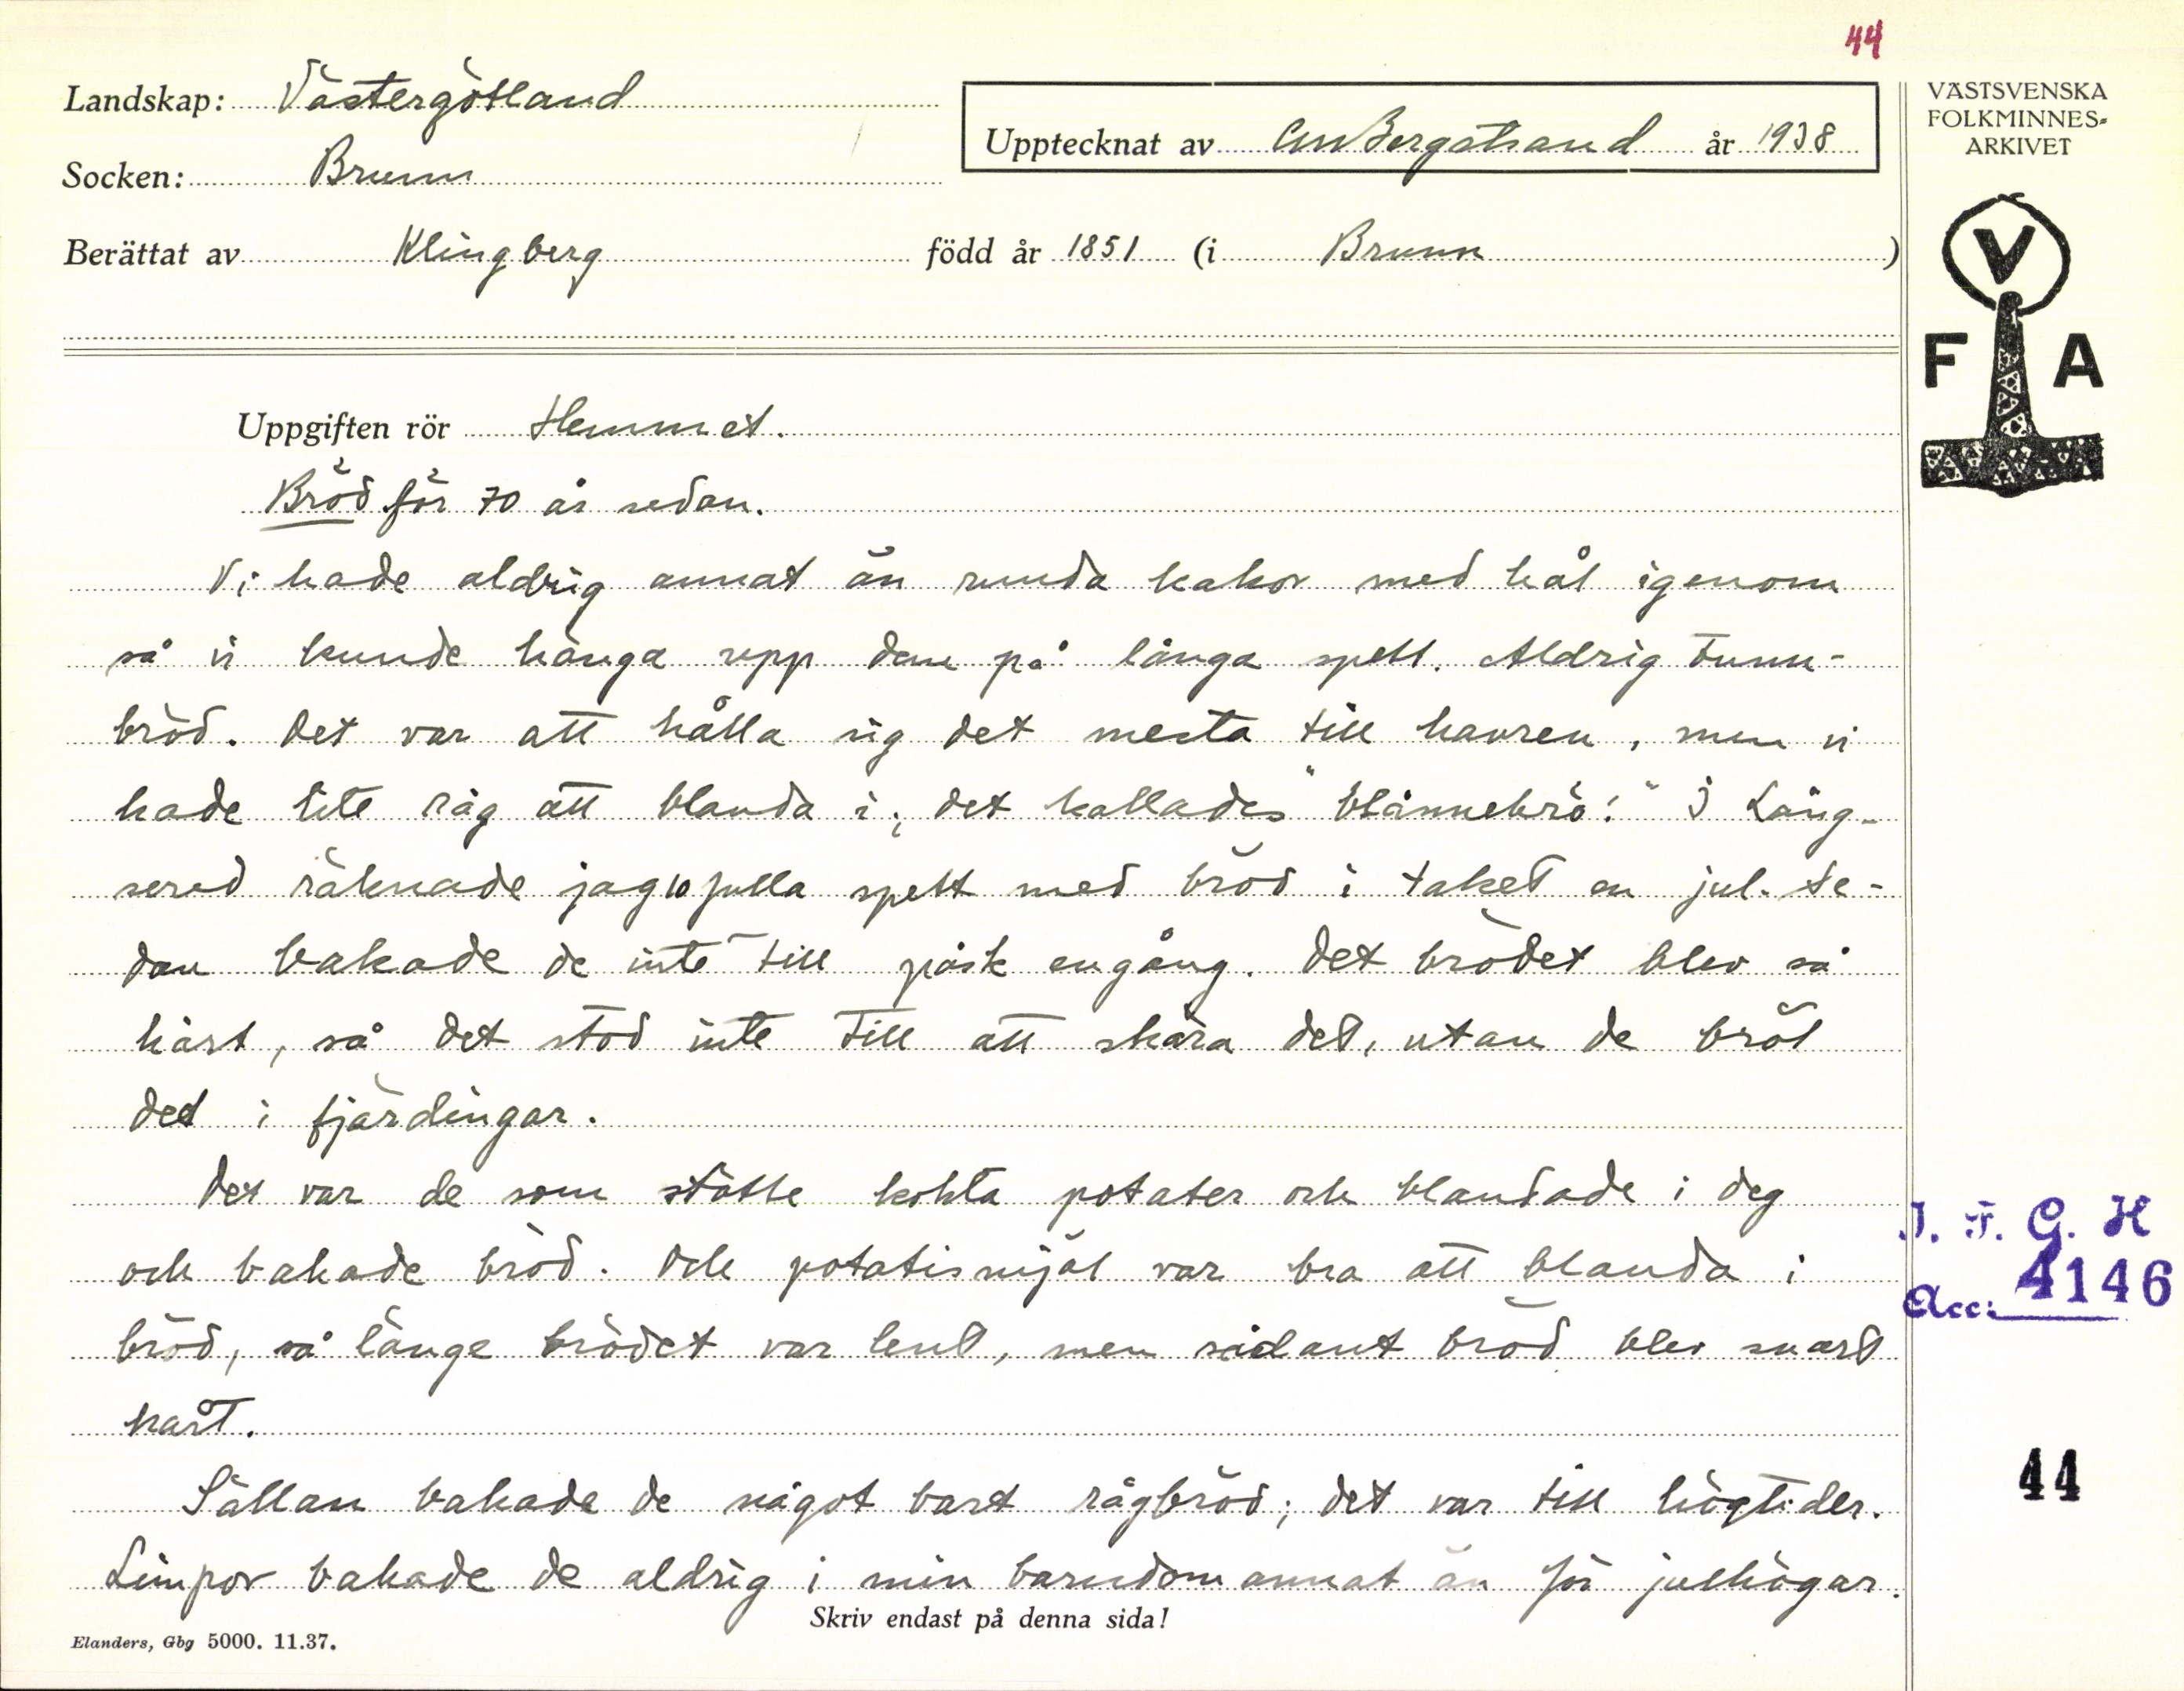 44
Landskap: Västergötland
Socken: Brunn
Upptecknat av CM Bergstrand år 1938
Berättat av Klingberg född år 1851 (i Brunn)
VÄSTSVENSKA
FOLKMINNES-
ARKIVET
V
F A
Uppgiften rör Hemmet.
Bröd för 70 år sedan.
Vi hade aldrig annat än runda kakor med hål igenom
så vi kunde hänga upp dem på långa spett. Aldrig tunn-
bröd. Det var att hålla sig det mesta till havren, men vi
hade lite råg att blanda i; det kallades "blännebrö." I Lång-
sered räknade jag 10 fulla spett med bröd i taket en jul. Se-
dan bakade de inte till påsk engång. Det brödet blev så
hårt, så det stod inte till att skära det, utan de bröt
det i fjärdingar.
Det var de som stötte kokta potater och blandade i deg
och bakade bröd. Och potatismjöl var bra att blanda i
bröd, så länge brödet var lent, men sådant bröd blev snart
hårt.
Sällan bakade de något bart rågbröd; det var till högtider.
Limpor bakade de aldrig i min barndom annat än för julhögar.
Skriv endast på denna sida!
Elanders, Gbg 5000. 11.37.
I. F. G. H
Acc: 4146
44